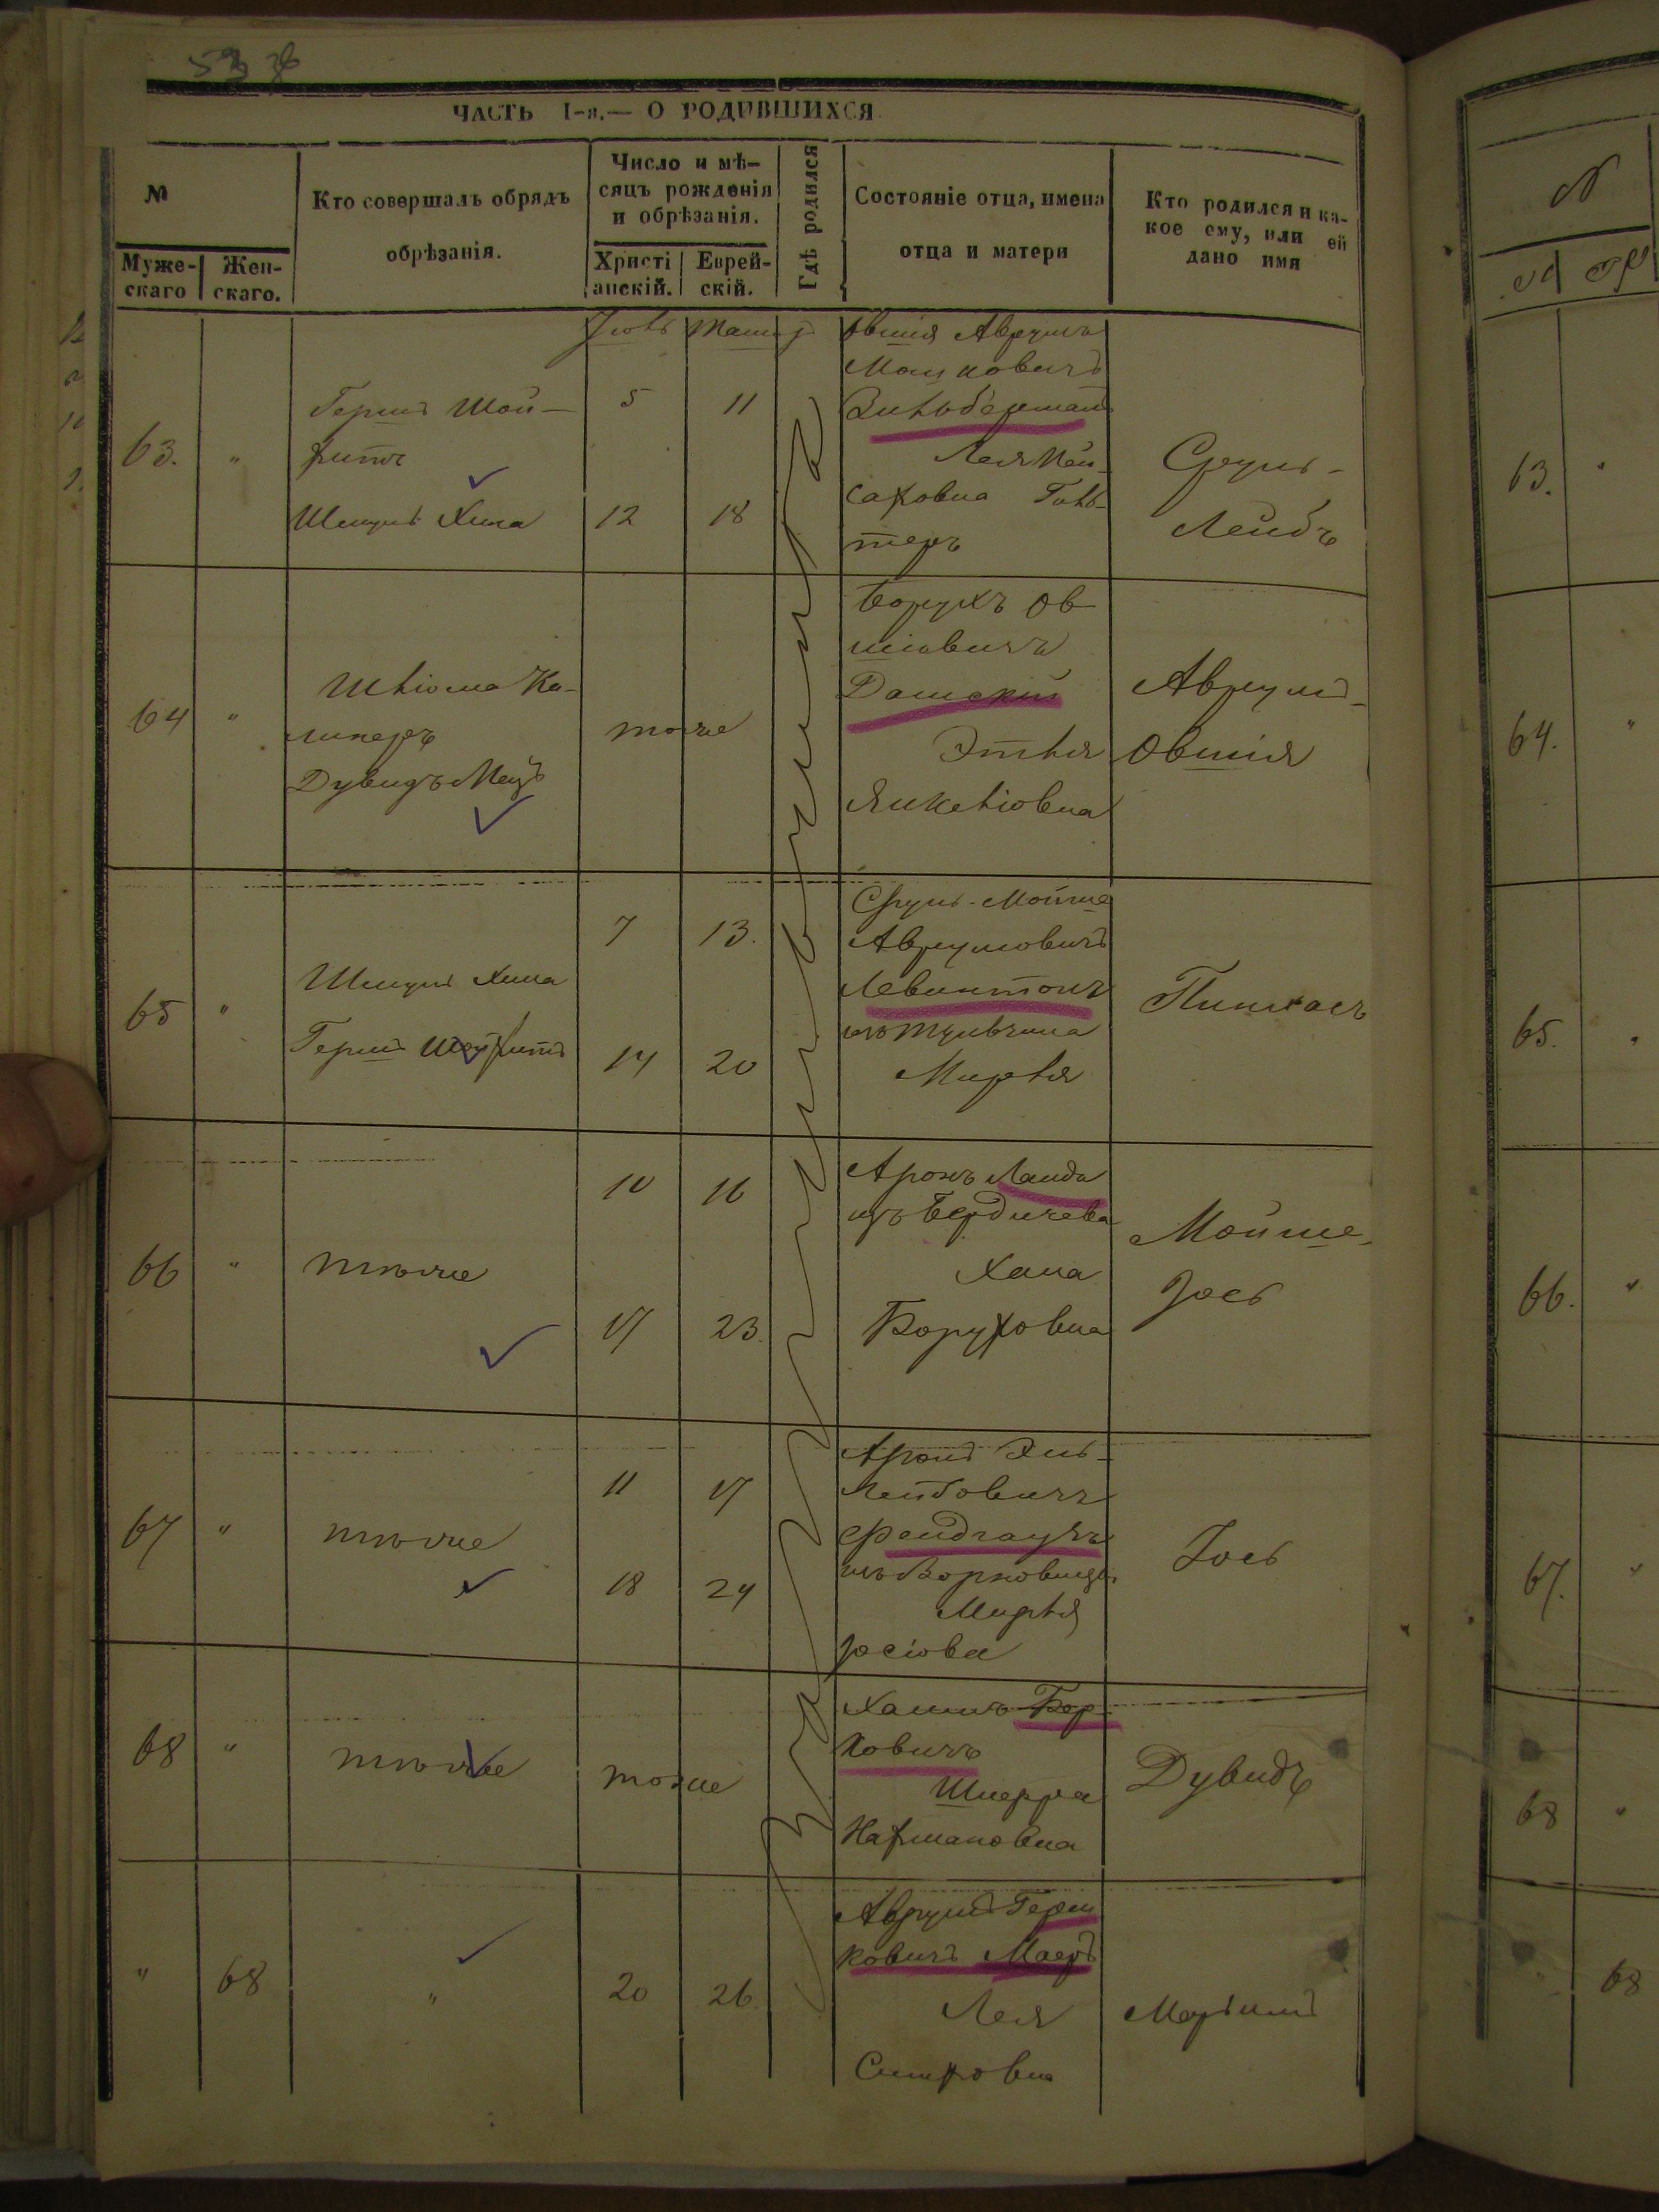 ЧАСТЬ I-я.— О РОДИВШИХСЯ
№
Муже-
скаго
Жен-
скаго.
Кто совершалъ обрядъ
обрѣзанія.
Число и мѣ-
сяцъ рожденія
и обрѣзанія.
Христі
анскій.
Еврей-
скій.
Гдѣ родился
Состояніе отца, имена
отца и матери
Кто родился и ка-
кое ему, или ей
дано имя
63.
"
Гершъ Шой-
Шмуль Хина
5
11
12
18
Овшія Аврумъ
Мошковичъ
Виньберманъ
Лея
Сруль-
Лейбъ
64
"
Шліома Ка-
Дувидъ Мецъ
тоже
Борухъ Ов-
шіовичъ
Дашский
Этля
Янкеліовна
Аврумъ-
Овшія
65
"
Шмуль Хина
Гершъ
7
13.
14
20
Сруль-Мойше
Аврумовичъ
Левинтонъ
изъ Тульчина
Мирля
Пинхасъ
66
"
тоже
10
16
17
23.
Аронъ Ланда
изъ Бердичева
Хана
Боруховна
Мойше-
Іось
67
"
тоже
11
17
18
24
Аронъ
Лейбовичъ
Мирля
Іосіова
Іось
68
"
тоже
тоже
Хаимъ Бер-
ковичъ
Нахмановна
Дувидъ
"
68
"
20
26.
Аврумъ Герш
ковичъ Маеръ
Лея
Марьимъ
13.
64.
65.
66.
67.
68
68